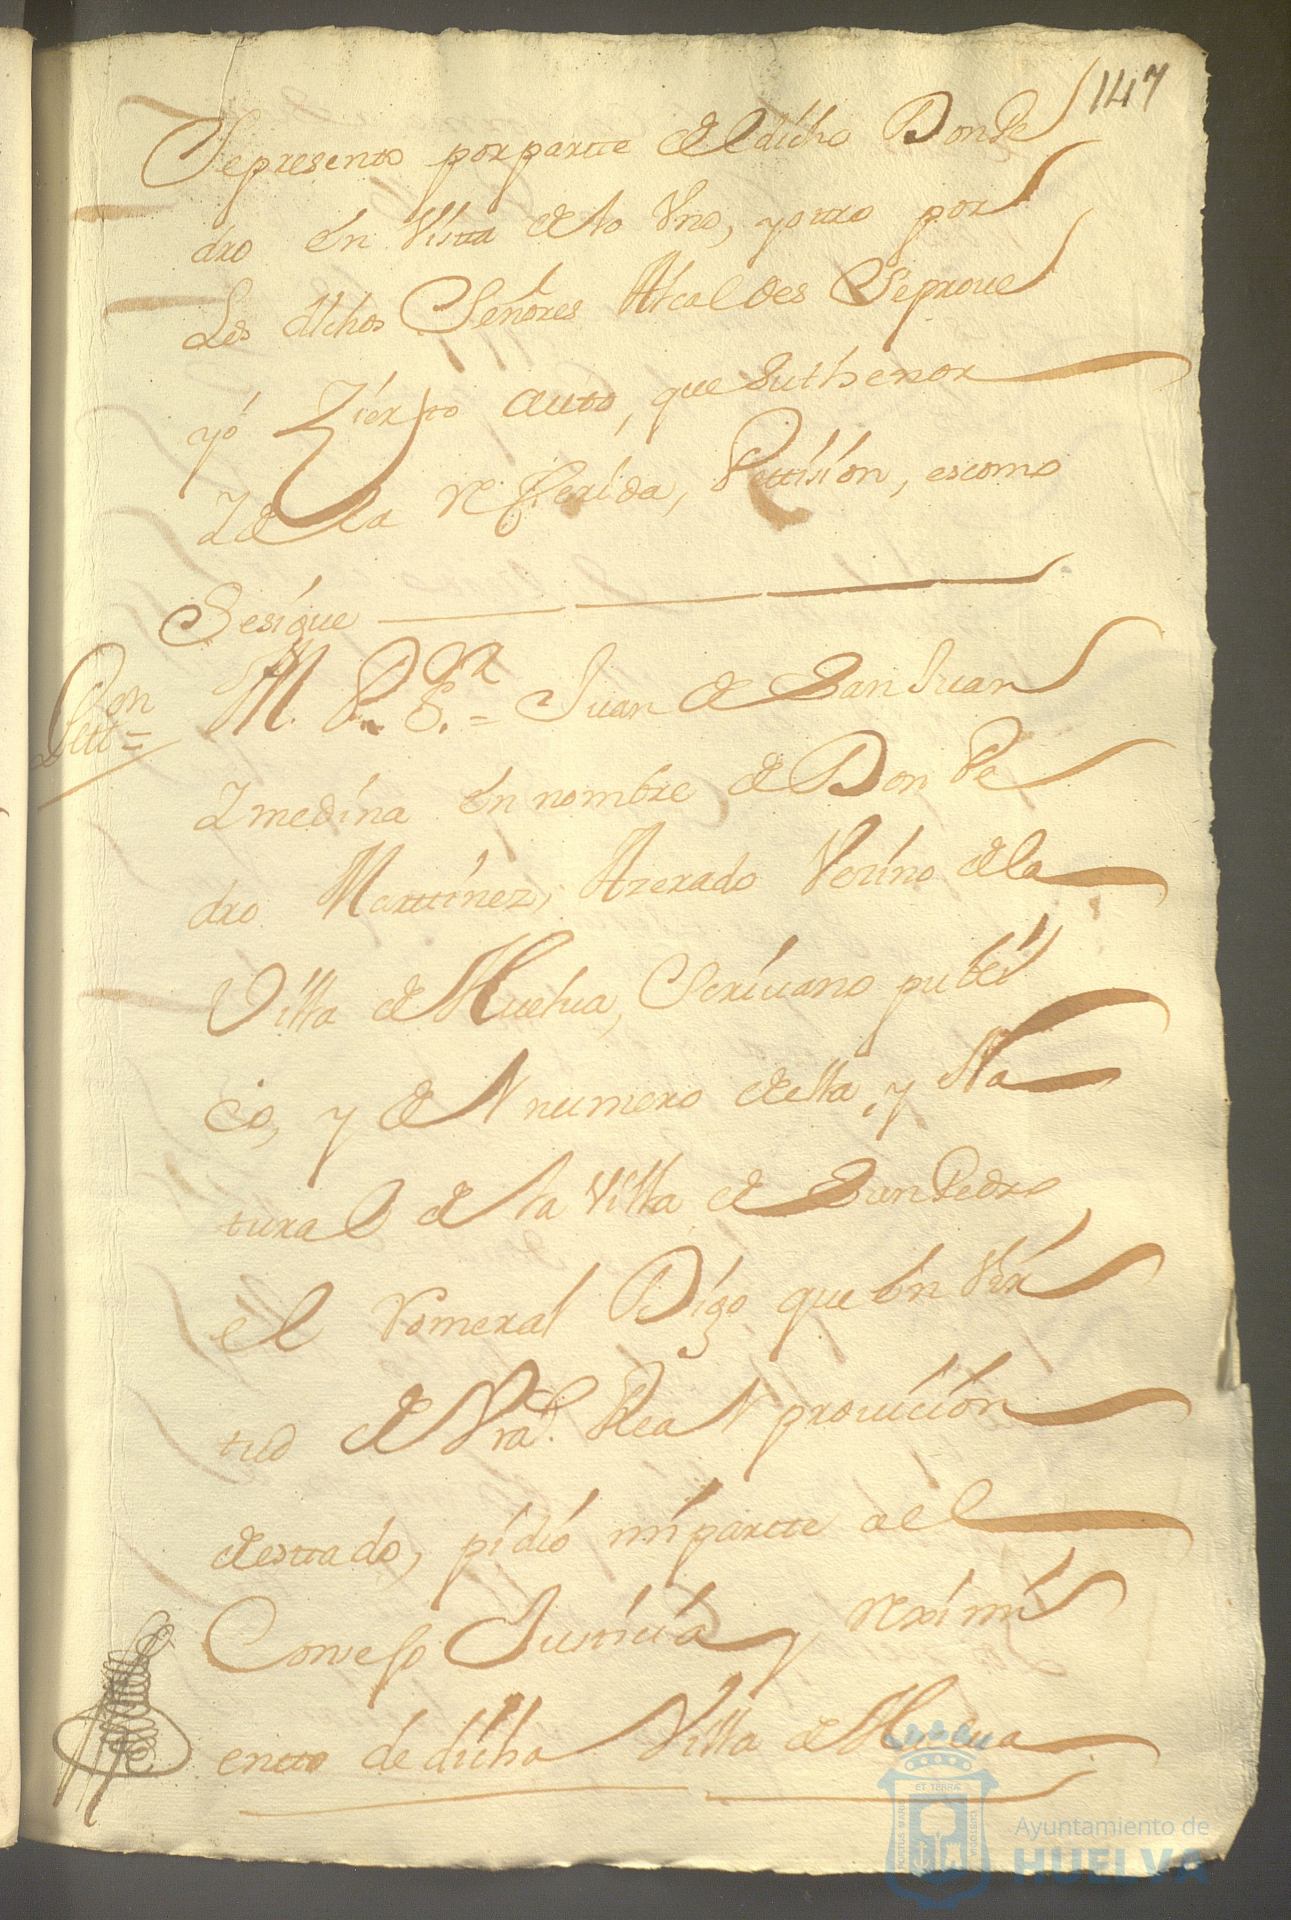 147
Sepresento porpartte del dicho Don Pe
dro en Vistta de lo Vno, yotro por
Los dichos Señores Alcaldes Seproue
yó Zierto autto, que Suthenor
Y de la refferida, Pettisión, escomo
Sesigue
Pett.on =
M. P. S.or = Juan de San Juan
Y medina en nombre de Don Pe
dro Marttinez, Azerado Vezino dela
Villa de Huelua, Scriuano publi
co, y del numero della, y Na
tural de la Villa de San Pedro
el Romeral Digo que en Vir
tud de Vra. Real prouición
desttado, pidió mi partte a el
Consejo Justicia y reximi
entto de dicha Villa de Huelua
PORTUS MARIS ET TERRAE CUSTODIA
Ayuntamiento de
HUELVA